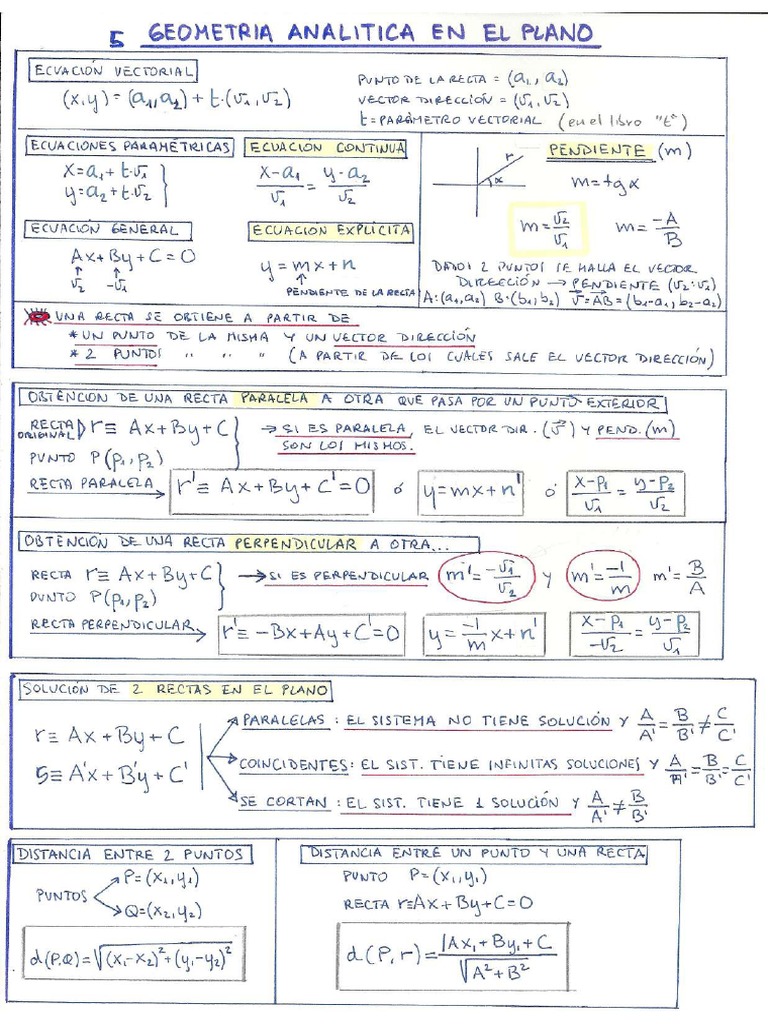 5 GEOMETRIA ANALITICA EN EL PLANO
ECUACIÓN VECTORIAL
(x,y) = (a₁,a₂) + t·(v₁,v₂)
PUNTO DE LA RECTA = (a₁, a₂)
VECTOR DIRECCIÓN = (v₁, v₂)
t = PARÁMETRO VECTORIAL (en el libro "t")
ECUACIONES PARAMÉTRICAS
x = a₁ + t·v₁
y = a₂ + t·v₂
ECUACION CONTINUA
(x-a₁)/v₁ = (y-a₂)/v₂
PENDIENTE (m)
r
α
m = tg α
m = v₂/v₁
m = -A/B
ECUACIÓN GENERAL
Ax + By + C = 0
↑ ↑
v₂ -v₁
ECUACION EXPLÍCITA
y = mx + n
↑
PENDIENTE DE LA RECTA
DADOS 2 PUNTOS SE HALLA EL VECTOR
DIRECCIÓN → PENDIENTE (v₂:v₁)
A:(a₁,a₂) B:(b₁,b₂) v⃗=AB⃗=(b₁-a₁, b₂-a₂)
UNA RECTA SE OBTIENE A PARTIR DE
* UN PUNTO DE LA MISMA Y UN VECTOR DIRECCIÓN
* 2 PUNTOS " " " (A PARTIR DE LOS CUALES SALE EL VECTOR DIRECCIÓN)
OBTENCION DE UNA RECTA PARALELA A OTRA QUE PASA POR UN PUNTO EXTERIOR
RECTA ORIGINAL r ≡ Ax + By + C
PUNTO P(p₁,p₂)
→ SI ES PARALELA, EL VECTOR DIR. (v⃗) Y PEND. (m)
SON LOS MISMOS.
RECTA PARALELA → r' ≡ Ax + By + C' = 0 ó y = mx + n' ó (x-p₁)/v₁ = (y-p₂)/v₂
OBTENCIÓN DE UNA RECTA PERPENDICULAR A OTRA...
RECTA r ≡ Ax + By + C
PUNTO P(p₁,p₂)
→ SI ES PERPENDICULAR m' = -v₁/v₂ Y m' = -1/m m' = B/A
RECTA PERPENDICULAR → r' ≡ -Bx + Ay + C' = 0 y = -1/m x + n' (x-p₁)/-v₂ = (y-p₂)/v₁
SOLUCIÓN DE 2 RECTAS EN EL PLANO
r ≡ Ax + By + C
s ≡ A'x + B'y + C'
PARALELAS : EL SISTEMA NO TIENE SOLUCIÓN Y A/A' = B/B' ≠ C/C'
COINCIDENTES: EL SIST. TIENE INFINITAS SOLUCIONES Y A/A' = B/B' = C/C'
SE CORTAN : EL SIST. TIENE 1 SOLUCIÓN Y A/A' ≠ B/B'
DISTANCIA ENTRE 2 PUNTOS
PUNTOS
P = (x₁,y₁)
Q = (x₂,y₂)
d(P,Q) = √((x₁-x₂)² + (y₁-y₂)²)
DISTANCIA ENTRE UN PUNTO Y UNA RECTA
PUNTO P = (x₁,y₁)
RECTA r ≡ Ax + By + C = 0
d(P,r) = |Ax₁ + By₁ + C/√(A² + B²)